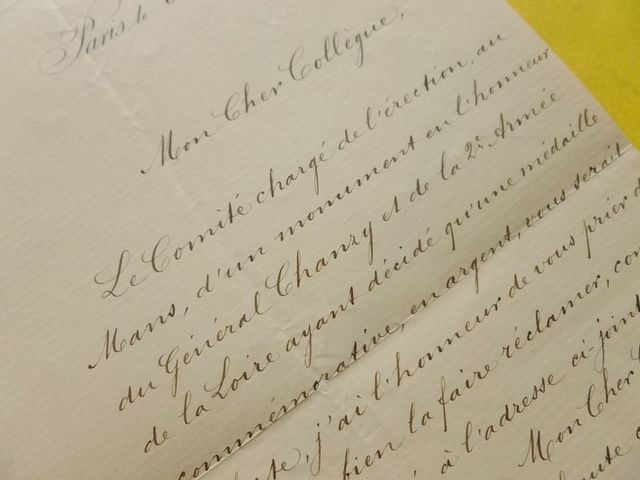 Paris, le
Mon Cher Collègue,
Le Comité chargé de l'érection, au
Mans, d'un monument en l'honneur
du Général Chanzy et de la 2e Armée
de la Loire ayant décidé qu'une médaille
commémorative, en argent, vous serait
j'ai l'honneur de vous prier
bien la faire réclamer,
à l'adresse ci-joint
Mon Cher